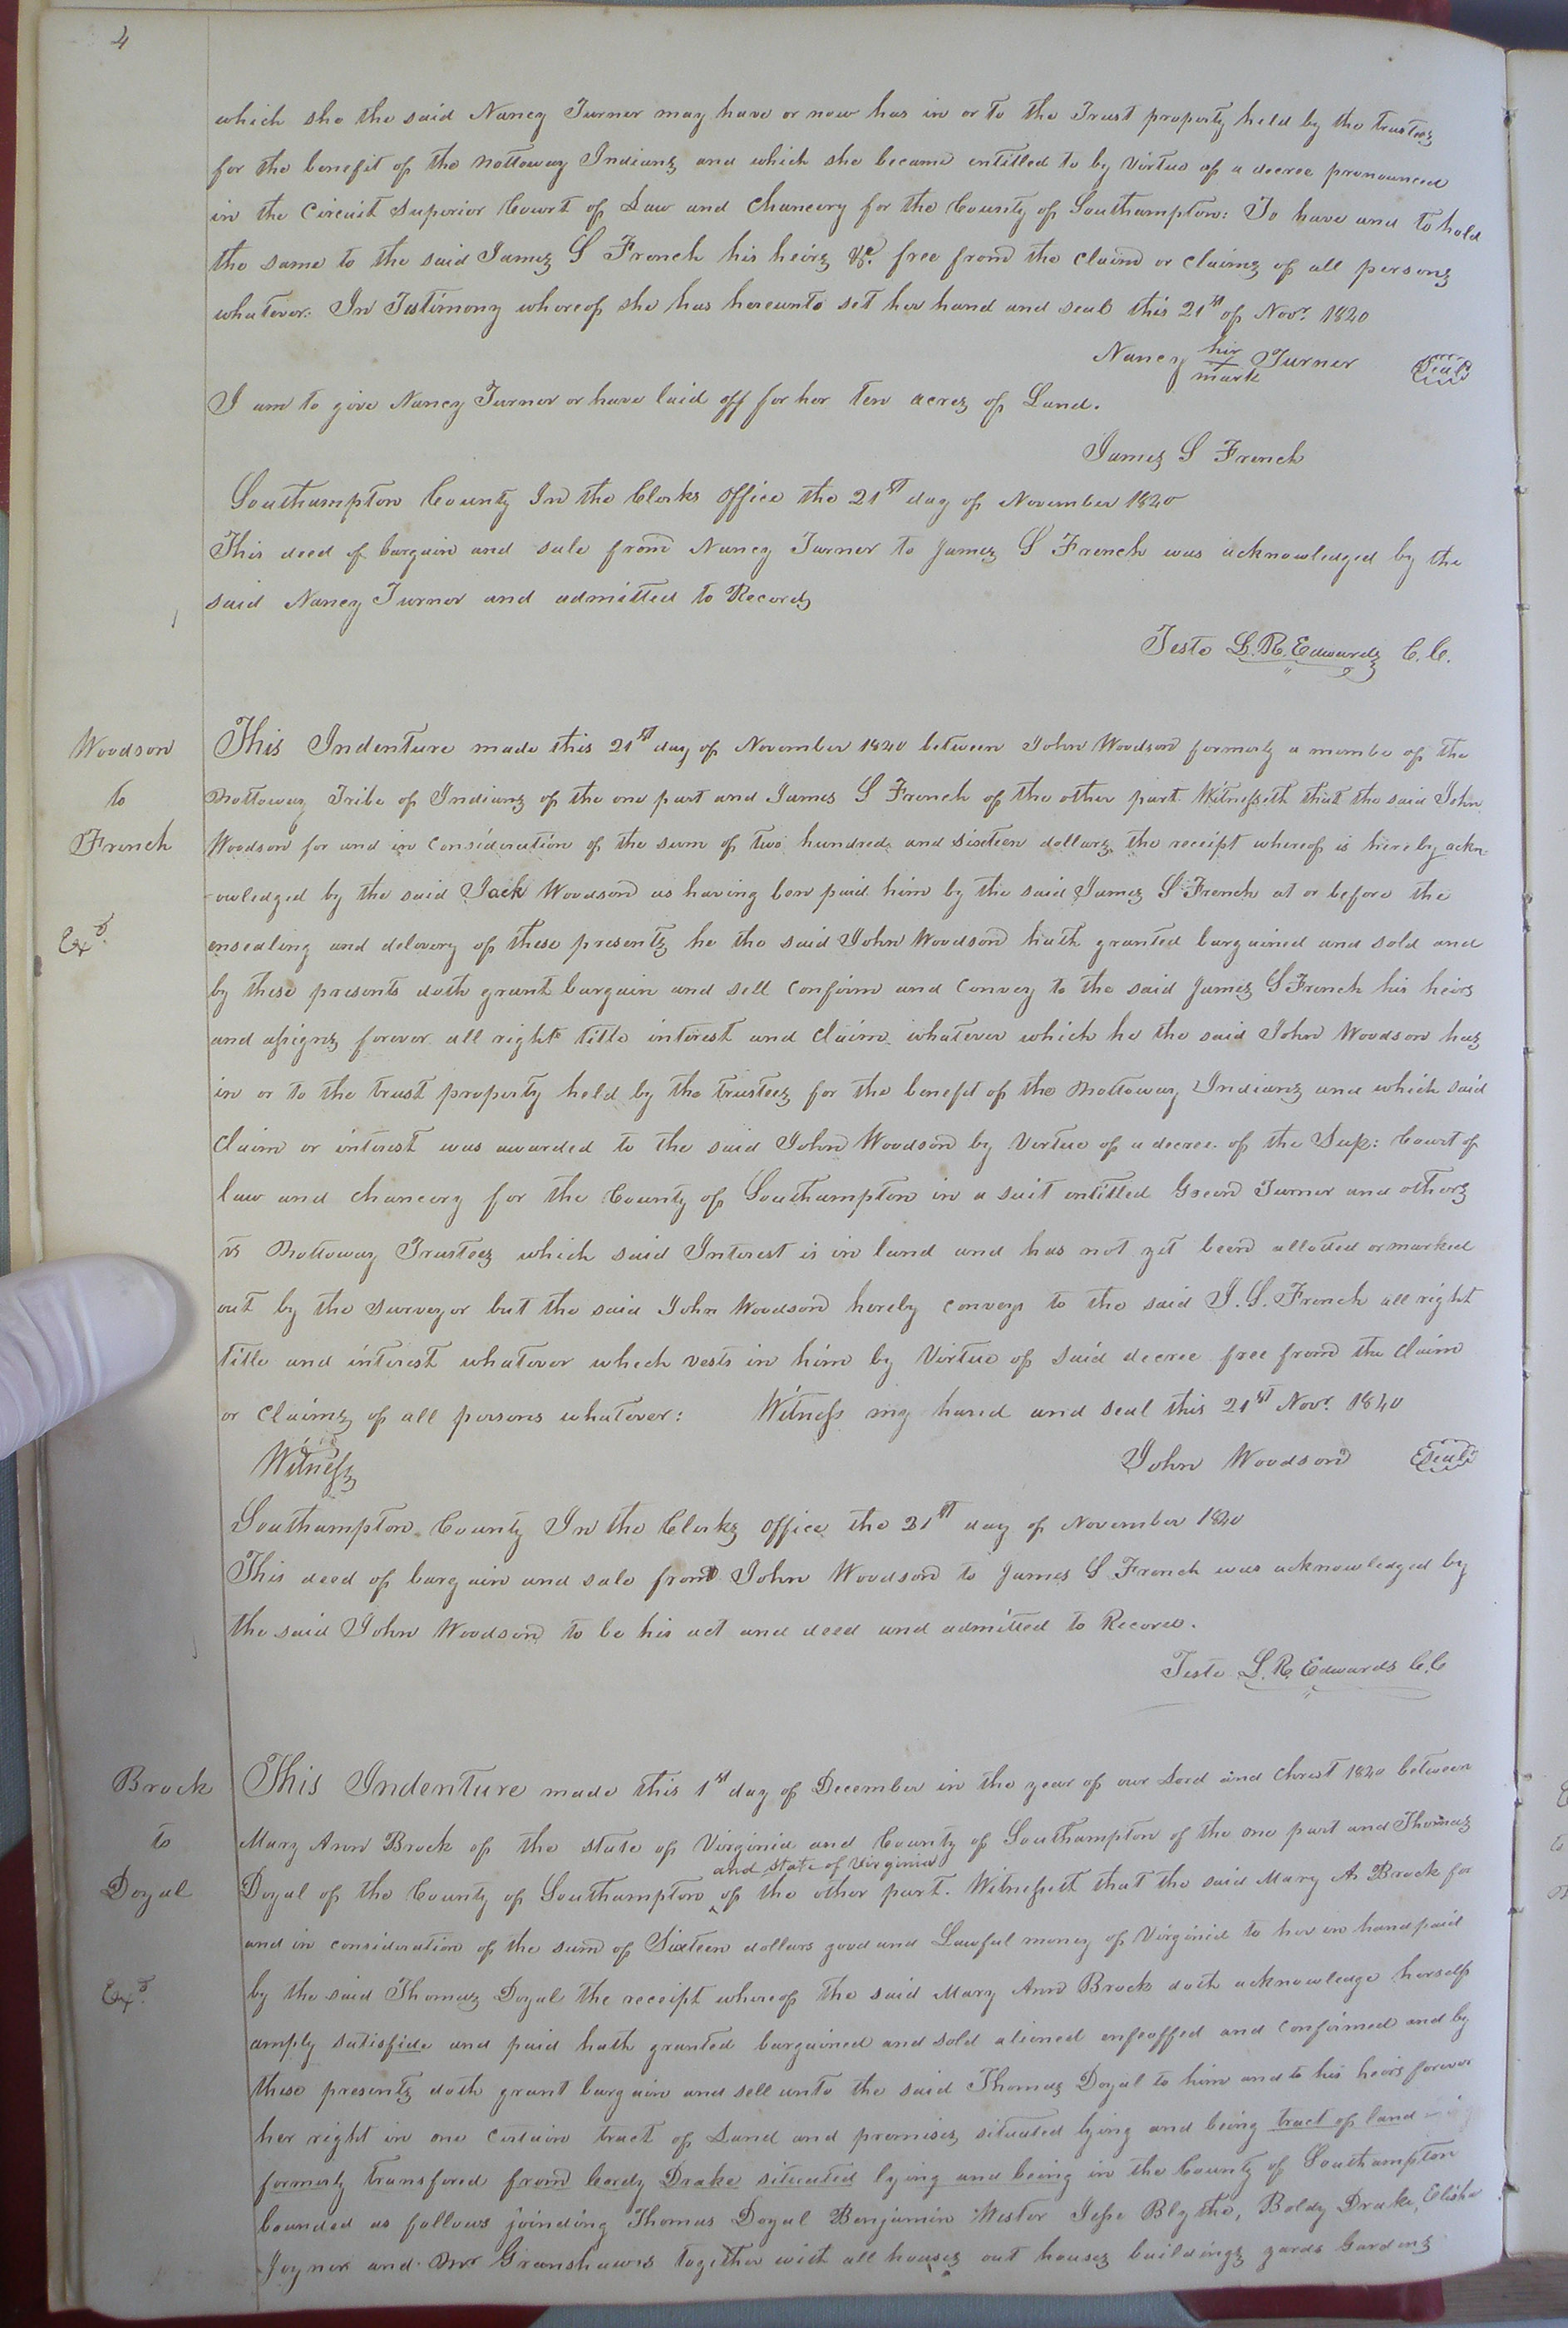 4
which she the said Nancy Turner may have or now has in or to the Trust property held by the trustees
for the benefit of the Nottoway Indians and which she became entitled to by virtue of a decree pronounced
in the Circuit Superior Court of Law and Chancery for the County of Southampton: To have and to hold
the same to the said James S French his heirs &c. free from the claim or claims of all persons
whatever: In Testimony whereof she has hereunto set her hand and seal this 21st of Novr. 1840
Nancy her X mark Turner Seal
I am to give Nancy Turner or have laid off for her ten acres of Land.
James S French
Southampton County In the Clerks office the 21st day of November 1840
This deed of bargain and sale from Nancy Turner to James S French was acknowledged by the
said Nancy Turner and admitted to Record
Teste L. R. Edwards C. C.
Woodson
to
French
Exd.
This Indenture made this 21st day of November 1840 between John Woodson formerly a membe of the
Nottoway Tribe of Indians of the one part and James S French of the other part Witnesseth that the said John
Woodson for and in consideration of the sum of two hundred and sixteen dollars the receipt whereof is hereby ackn-
-owledged by the said Jack Woodson as having ben paid him by the said James S French at or before the
ensealing and delovery of these presents he the said John Woodson hath granted bargained and sold and
by these presents doth grant bargain and sell confirm and convey to the said James S French his heirs
and assigns forever all right title interest and claim whatever which he the said John Woodson has
in or to the trust property held by the trustees for the benefit of the Nottoway Indians and which said
claim or interest was awarded to the said John Woodson by Virtue of a decree of the Sup: Court of
law and chancery for the County of Southampton in a suit entitled Green Turner and others
vs Nottoway Trustees which said Interest is in land and has not yet been alloted or marked
out by the surveyor but the said John Woodson hereby conveys to the said J. S. French all right
title and interest whatever which vests in him by Virtue of said decree free from the claim
or claims of all persons whatever: Witness my hand and seal this 21st Novr. 1840
Witness John Woodson Seal
Southampton County In the Clerks office the 21st day of November 1840
This deed of bargain and sale from John Woodson to James S French was acknowledged by
the said John Woodson to be his act and deed and admitted to Record.
Teste L. R. Edwards C. C
Brock
to
Doyal
Exd.
This Indenture made this 1st day of December in the year of our Lord and Christ 1840 between
Mary Ann Brock of the state of Virginia and County of Southampton of the one part and Thomas
and state of Virginia
Doyal of the County of Southampton ^ of the other part. Witnesseth that the said Mary A. Brock for
and in consideration of the sum of Sixteen dollars good and Lawful money of Virginia to her in hand paid
by the said Thomas Doyal the receipt whereof the said Mary Ann Brock doth acknowledge herself
amply satisfide and paid hath granted bargained and sold aliened enfeoffed and confirmed and by
these presents doth grant bargain and sell unto the said Thomas Doyal to him and to his heirs forever
her right in one certain tract of Land and premises situated lying and being tract of land
formerly transfered from Cordy Drake situated lying and being in the County of Southampton
bounded as follows joinding Thomas Doyal Benjamin Wester Jesse Blythe, Boldy Drake, Elisha
Joyner and Mr Greenshaws together with all houses out houses buildings yards Gardens